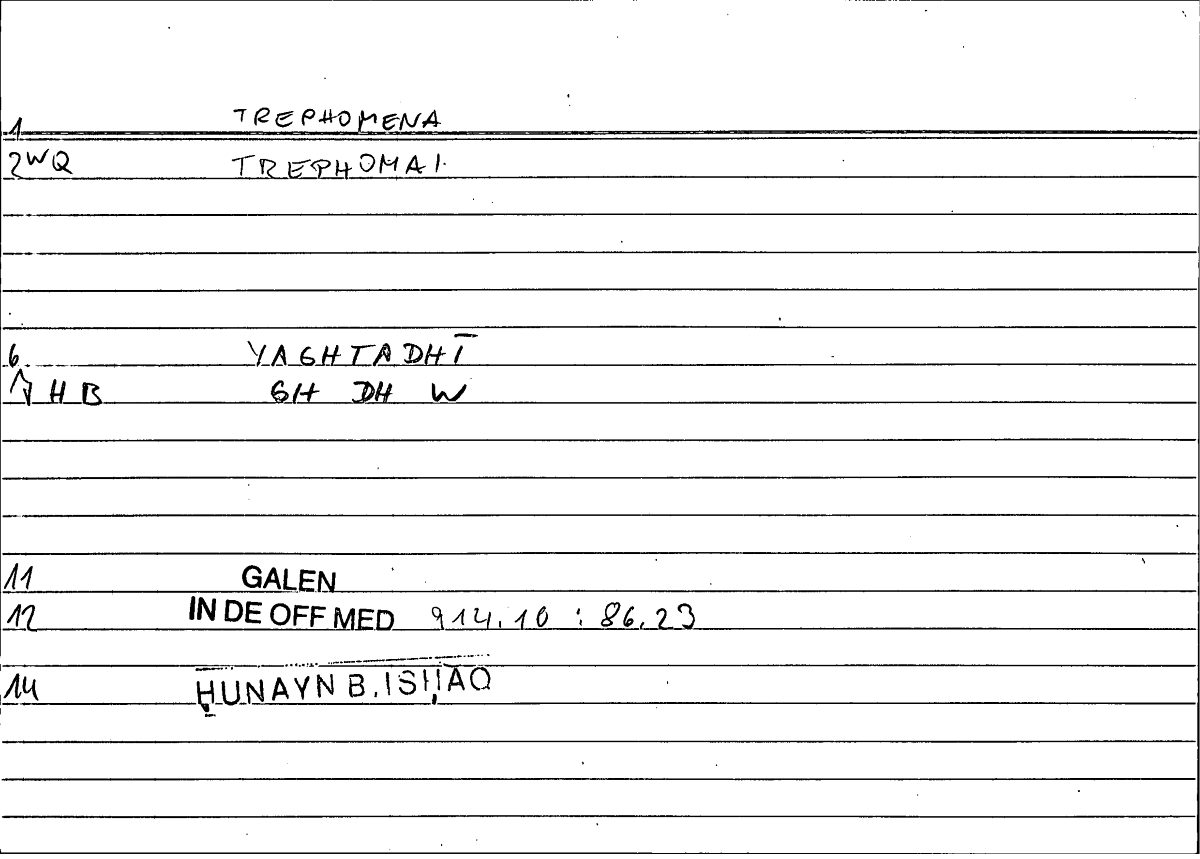 1 TREPHOMENA
2WQ TREPHOMAI
6. YAGHTADHĪ
HB GH DH W
11 GALEN
12 IN DE OFF MED 914.10 : 86.23
14 ḤUNAYN B. ISḤĀQ